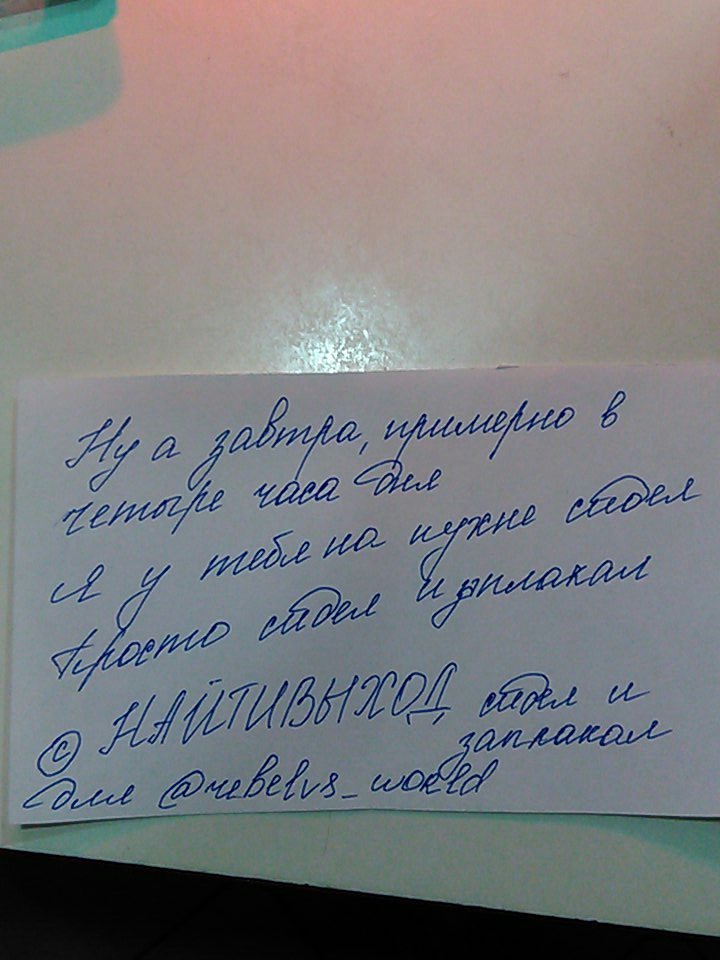 Ну а завтра, примерно в
четыре часа дня
я у тебя на кухне сидел
Просто сидел и заплакал
© НАЙТИВЫХОД, сидел и
заплакал
для @rebelvs_world